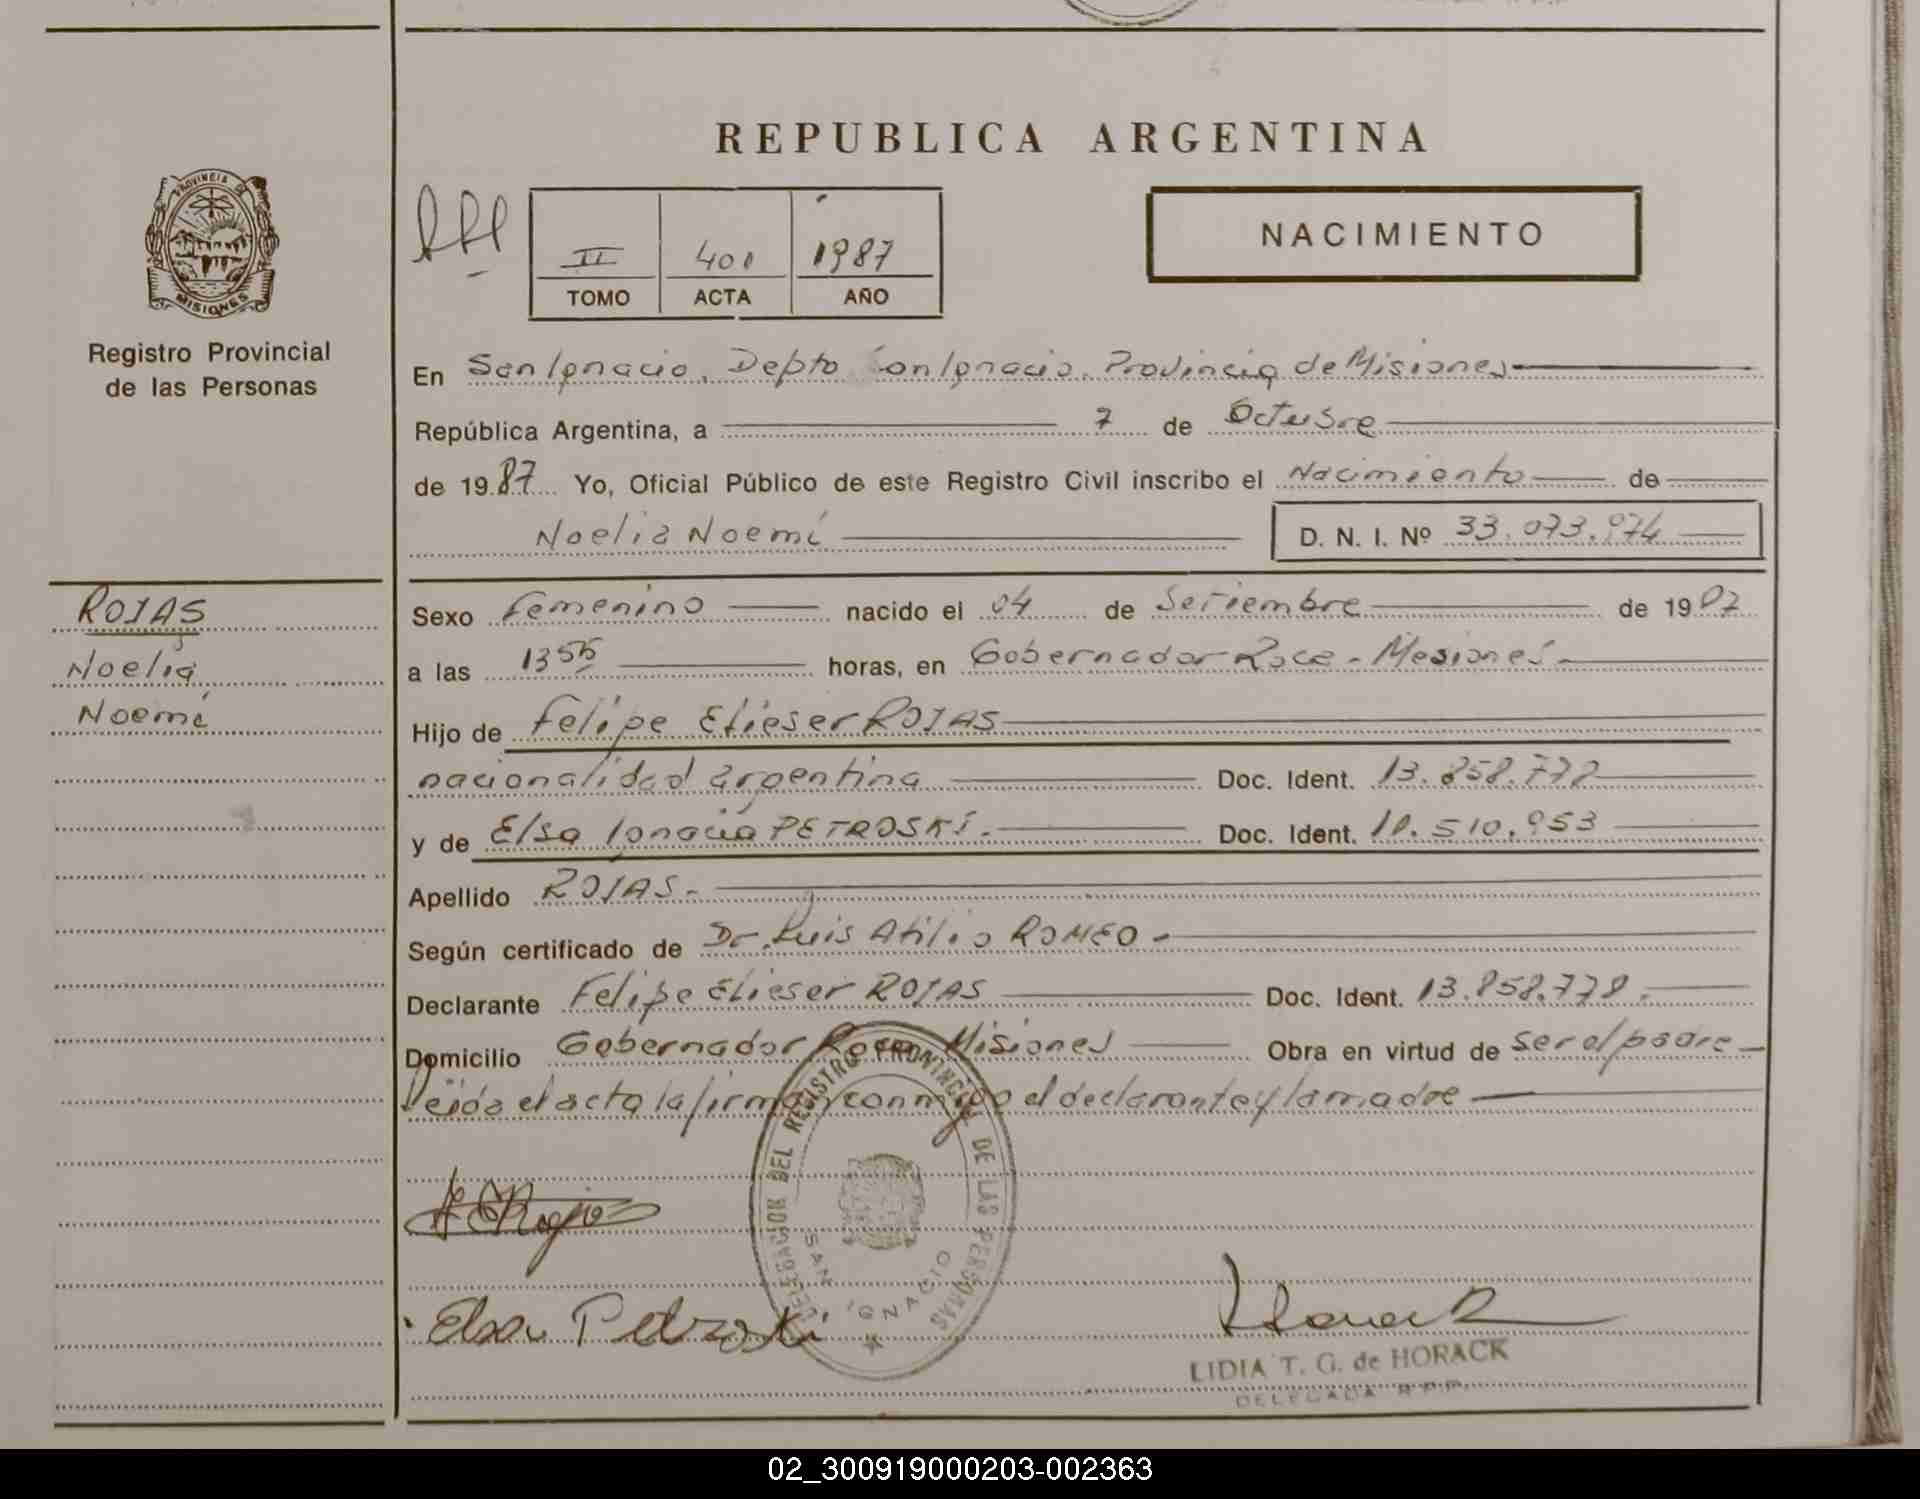 REPUBLICA ARGENTINA
PROVINCIA DE
MISIONES
Registro Provincial
de las Personas
II 401 1987
TOMO ACTA AÑO
NACIMIENTO
En San Ignacio, Depto San Ignacio, Provincia de Misiones
República Argentina, a 7 de Octubre
de 1987 Yo, Oficial Público de este Registro Civil inscribo el Nacimiento de
Noelia Noemí D. N. I. Nº 33.073.974
ROJAS
Noelia
Noemí
Sexo Femenino nacido el 04 de Setiembre de 1987
a las 1355 horas, en Gobernador Roca - Mesiones
Hijo de Felipe Elieser ROJAS
nacionalidad argentina Doc. Ident. 13.858.778
y de Elsa Ignacia PETROSKI. Doc. Ident.
Apellido ROJAS.
Según certificado de Dr. Luis Atilio ROMEO
Declarante Felipe Elieser ROJAS Doc. Ident. 13.858.778.
Domicilio Gobernador Roca Misiones Obra en virtud de ser el padre
Leída el acta la firman conmigo el declarante y la madre
DELEGACION DEL REGISTRO PROVINCIAL DE LAS PERSONAS
SAN IGNACIO
Elsa Petroski
Horack
LIDIA T. G. de HORACK
DELEGADA R.P.P.
02_300919000203-002363